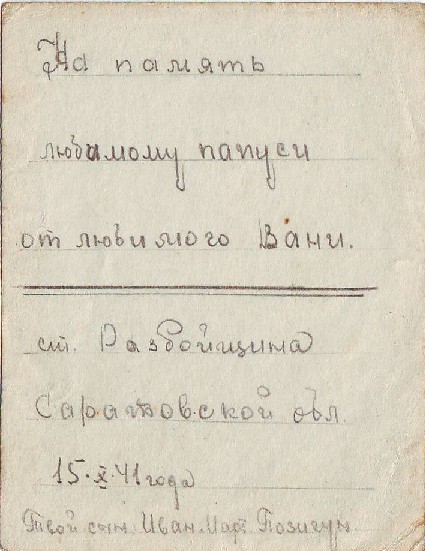 На память
любимому папуси
от любимого Вани.
ст. Разбойщина
Саратовской обл.
15.X.41 года
Твой сын Иван Март. Позигун.